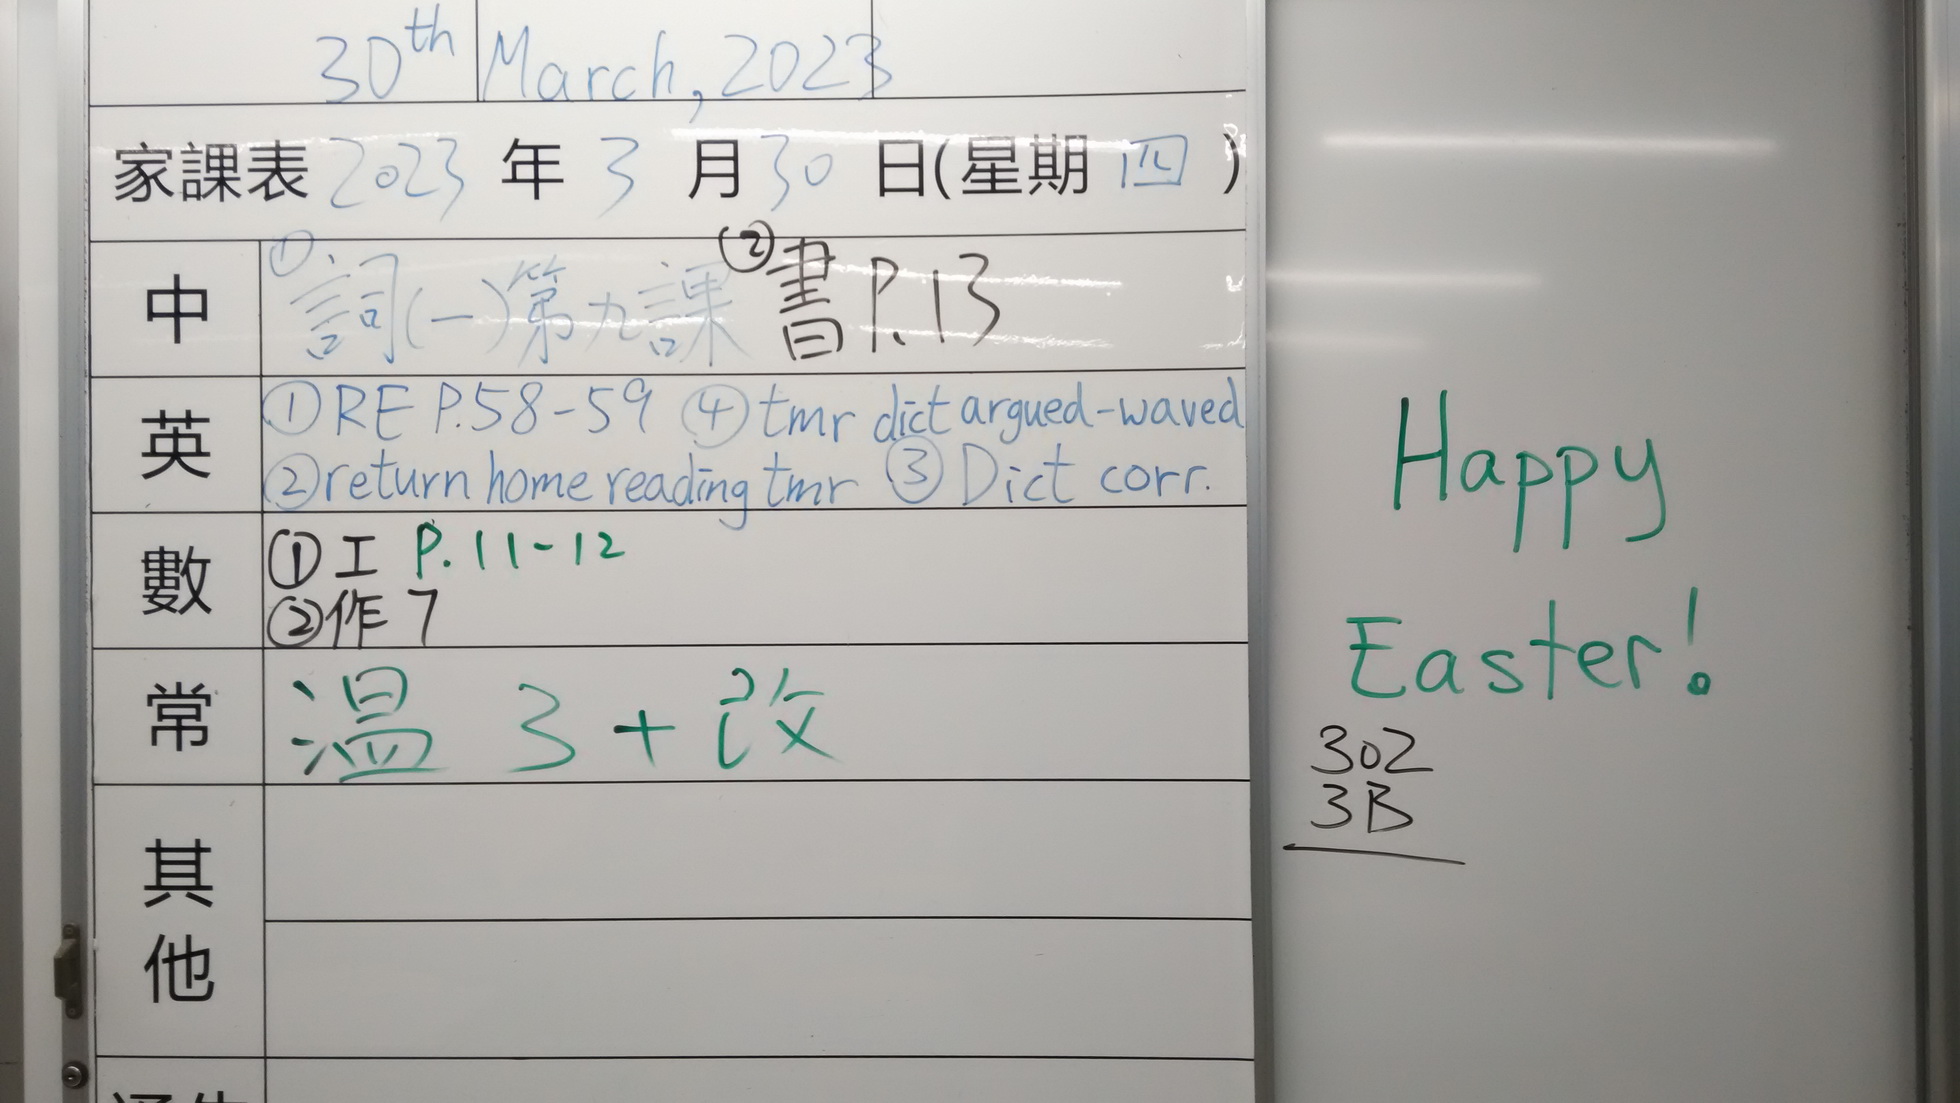 30th March, 2023
家課表 2023 年 3 月 30 日(星期 四 )
中 ① 詞(一)第九課 ②書 P.13
英 ① RE P.58-59 ④ tmr dict argued-waved
② return home reading tmr ③ Dict corr.
數 ① 工 P.11-12
② 作 7
常 溫 3 + 改
其他
Happy
Easter!
302
3B